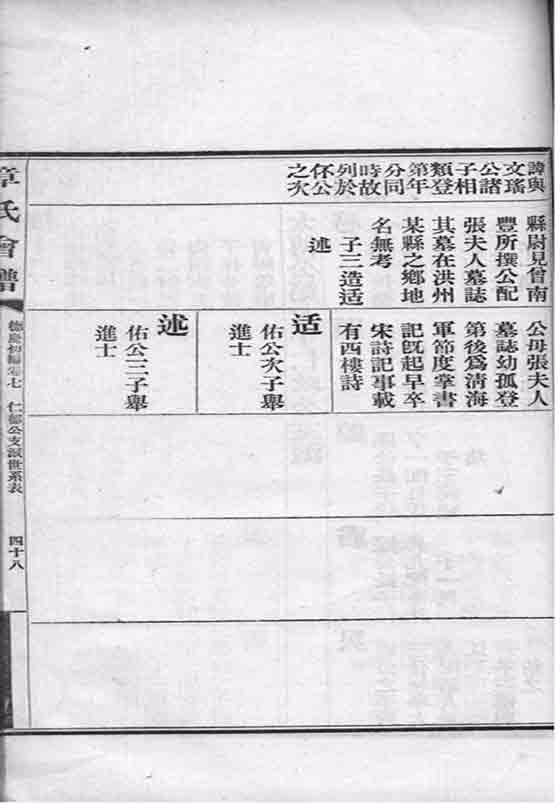 諱與
文瑤
公諸
子相
類登
第年
分同
時故
列於
伓公
之次
縣尉見曾南
豐所撰公配
張夫人墓誌
其墓在洪州
某縣之鄉地
名無考
子三造适
述
公母張夫人
墓誌幼孤登
第後爲清海
軍節度掌書
記旣起早卒
宋詩記事載
有西樓詩
适
佑公次子舉
進士
述
佑公三子舉
進士
章氏會譜
德慶初編卷七
仁郁公支派世系表
四十八